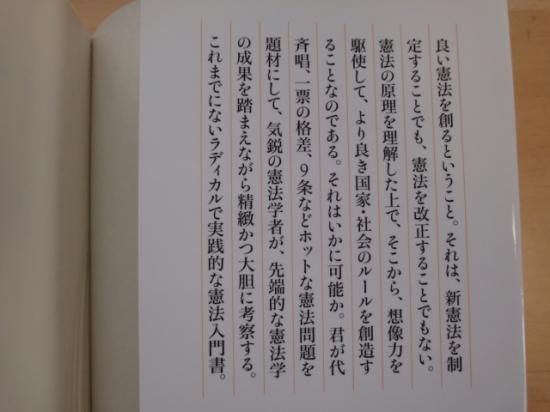 良い憲法を創るということ。それは、新憲法を制
定することでも、憲法を改正することでもない。
憲法の原理を理解した上で、そこから、想像力を
駆使して、より良き国家・社会のルールを創造す
ることなのである。それはいかに可能か。君が代
斉唱、一票の格差、9条などホットな憲法問題を
題材にして、気鋭の憲法学者が、先端的な憲法学
の成果を踏まえながら精緻かつ大胆に考察する。
これまでにないラディカルで実践的な憲法入門書。